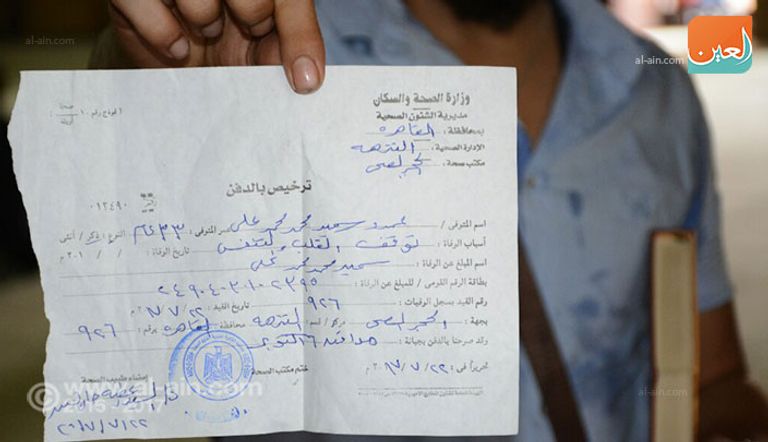 al-ain.com
العين
al-ain.com
وزارة الصحة والسكان
مديرية الشئون الصحية
بمحافظة : القاهرة
الإدارة الصحية : النزهة
مكتب صحة :
صحة
نموذج رقم ١٠
ترخيص بالدفن
٠١٢٤٩٠
اسم المتوفى / عمرو سمير محمد محمد على عمر المتوفى : ٣٣ النوع ذكر / أنثى
أسباب الوفاة : توقف القلب والتنفس تاريخ الوفاة : / / ٢٠١ م
اسم المبلغ عن الوفاة : سمير محمد محمد على
بطاقة الرقم القومى / للمبلغ عن الوفاة : ٢٤٩٠٤٠٣٠١٠٢٣٩٥
رقم القيد بسجل الوفيات : ٩٢٦ تاريخ القيد : ٢٢/٧/
بجهة : مركز / قسم : النزهة محافظة القاهرة برقم : ٩٢٦
وقد صرحنا بالدفن بجبانة : ٦ أكتوبر
تحريراً فى : ٢٢ / ٧ / ٢٠١٧ م
ختم مكتب الصحة
إمضاء طبيب الصحة
٢٠١٧/٧/٢٢
www.al-ain.com
© 2015 - 2017
al-ain.com
al-ain.com